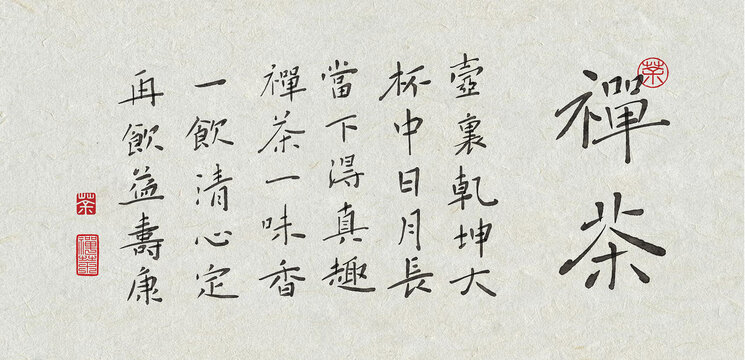 禪茶
茶
壺裏乾坤大
杯中日月長
當下得真趣
禪茶一味香
一飲清心定
再飲益壽康
茶
禪茶